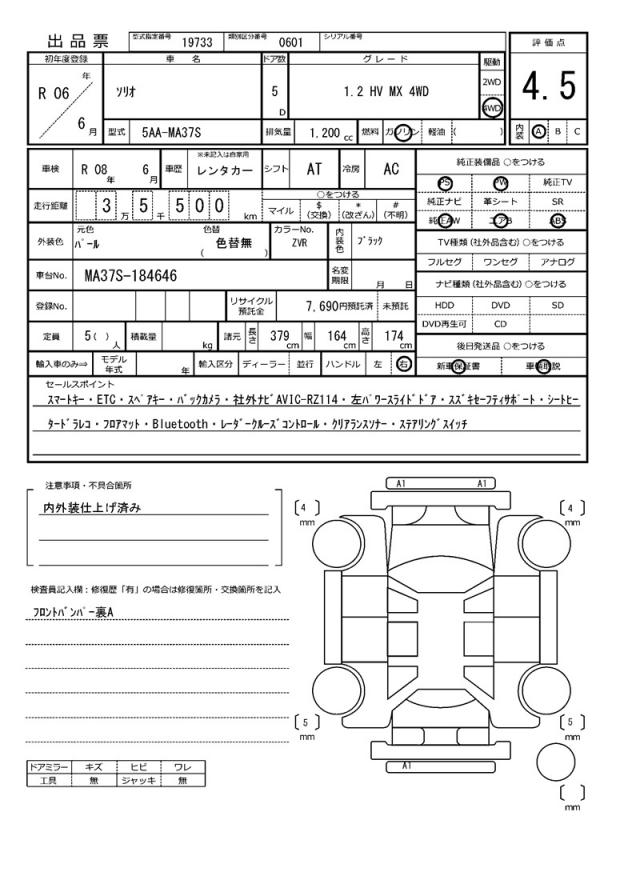 出品票 型式指定番号 19733 類別区分番号 0601 シリアル番号
評価点
4.5
内装 A B C
初年度登録 車名 ドア数 グレード 駆動
R 06 年 6 月 ソリオ 5 D 1.2 HV MX 4WD 2WD 4WD
型式 5AA-MA37S 排気量 1.200 cc 燃料 ガソリン 軽油 ( )
車検 R 08 年 6 月 車歴 ※未記入は自家用 レンタカー シフト AT 冷房 AC
走行距離 3 万 5 千 5 0 0 km ○をつける マイル $ (交換) * (改ざん) # (不明)
外装色 元色 パール 色替 色替無 ( ) カラーNo. ZVR 内装色 ブラック
車台No. MA37S-184646 名変期限 月 日
登録No. リサイクル預託金 7,690円預託済 未預託
定員 5( ) 人 積載量 kg 諸元 長さ 379 cm 幅 164 cm 高さ 174 cm
輸入車のみ⇒ モデル年式 年 輸入区分 ディーラー ・ 並行 ハンドル 左 ・ 右
純正装備品 ○をつける
PS PW 純正TV
純正ナビ 革シート SR
純正AW エアB ABS
TV種類 (社外品含む) ○をつける
フルセグ ワンセグ アナログ
ナビ種類 (社外品含む) ○をつける
HDD DVD SD
DVD再生可 CD
後日発送品 ○をつける
新車保証書 車輌取説
セールスポイント
スマートキー・ETC・スペアキー・バックカメラ・社外ナビAVIC-RZ114・左パワースライドドア・スズキセーフティサポート・シートヒー
タードラレコ・フロアマット・Bluetooth・レーダークルーズコントロール・クリアランスソナー・ステアリングスイッチ
注意事項・不具合箇所
内外装仕上げ済み
検査員記入欄：修復歴「有」の場合は修復箇所・交換箇所を記入
フロントバンパー裏A
ドアミラー キズ ヒビ ワレ
工具 無 ジャッキ 無
A1 A1
[ 4 ] mm [ 4 ] mm
[ 5 ] mm [ 5 ] mm
A1
[ ] mm